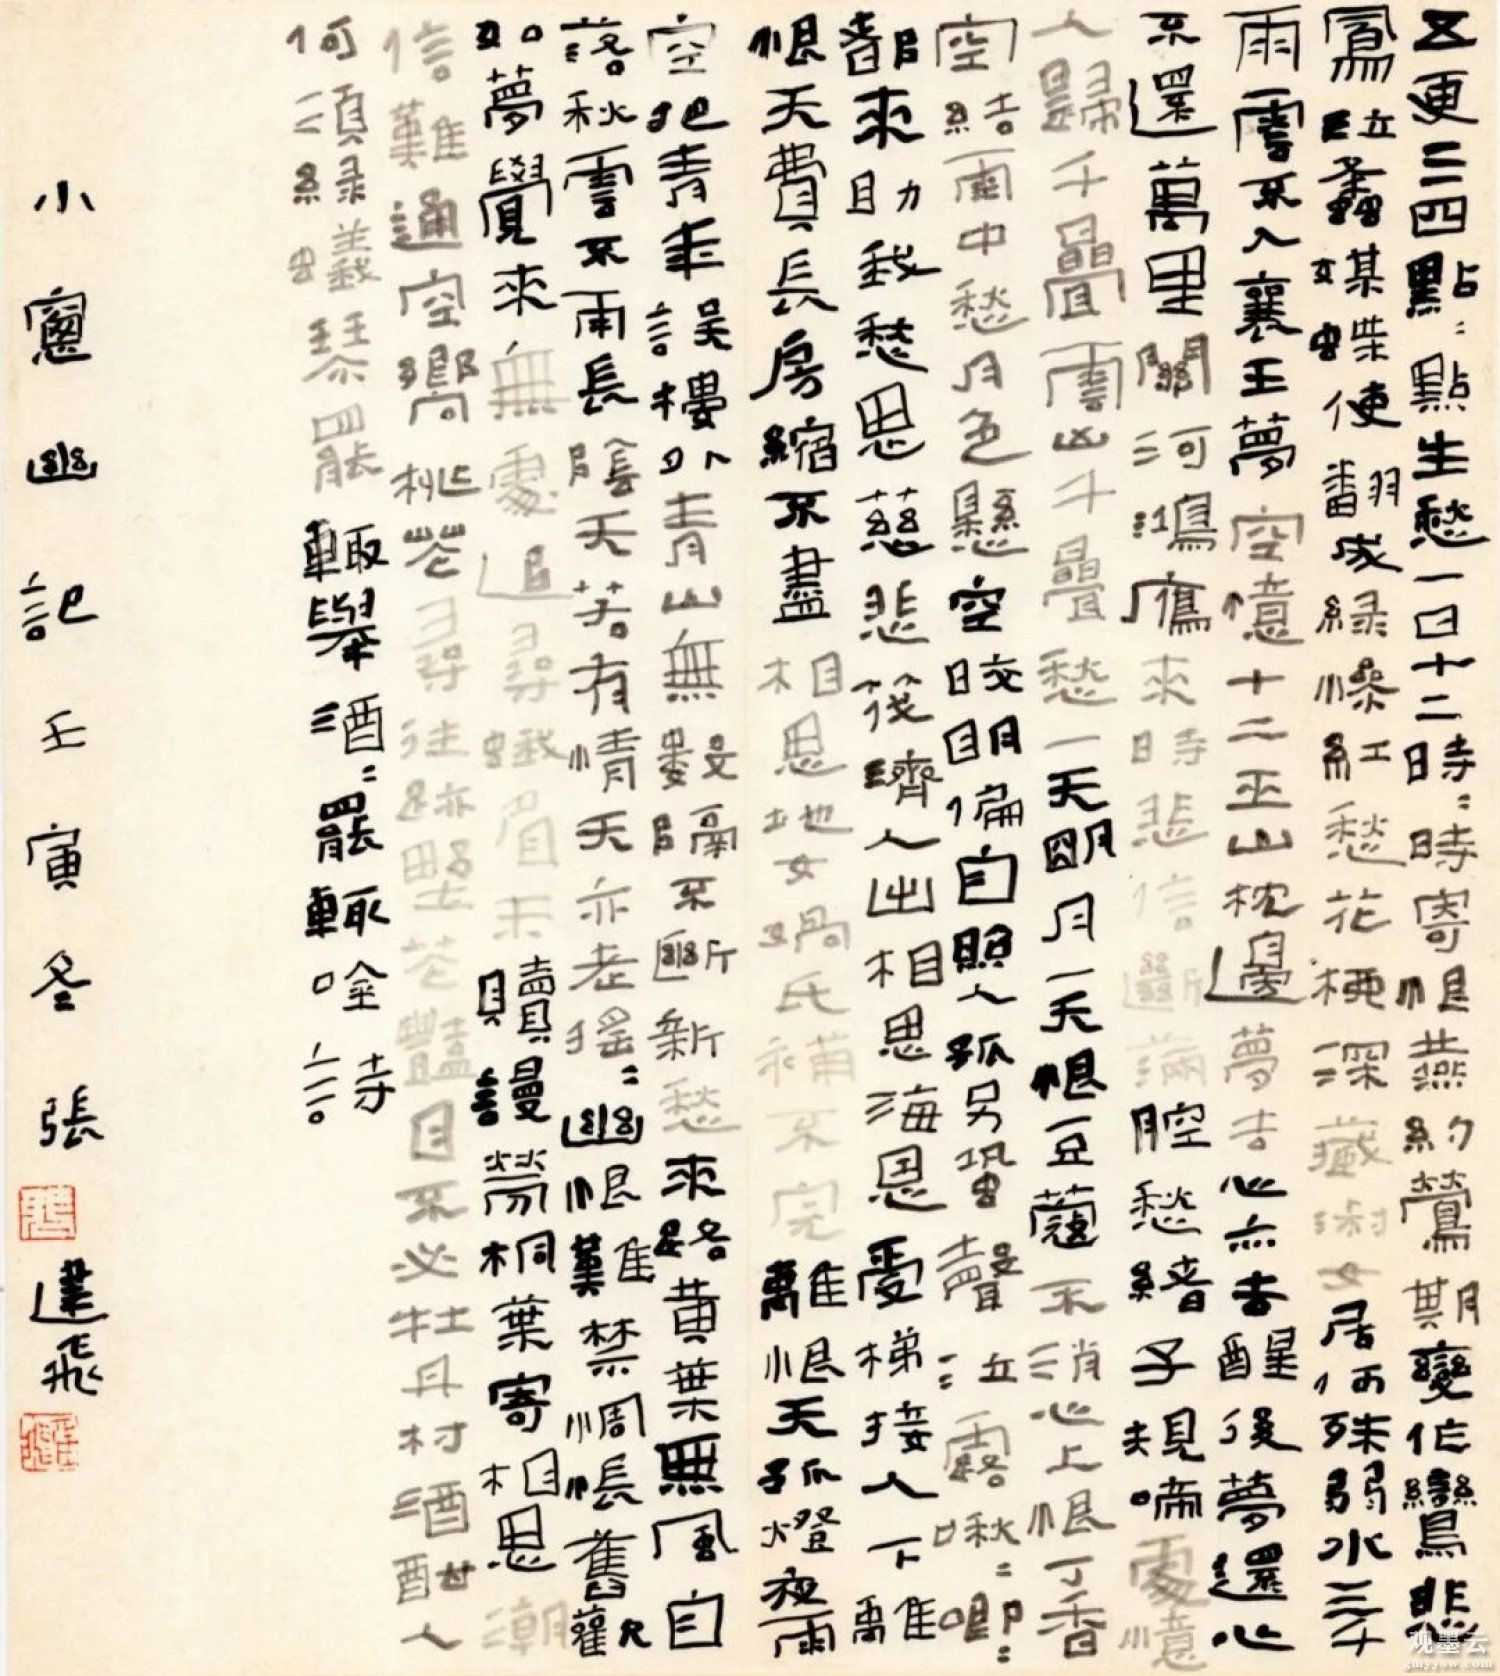 五更三四點〻點生愁一日十二時〻時寄恨燕約鶯期變作鸞悲
鳳泣蠭媒蝶使翻成綠慘紅愁花梗深藏䊹女居何殊弱水三千
雨雲不入襄王夢空憶十二巫山枕邊夢去心亦去醒後夢還心
不還萬里關河鴻雁來時悲信斷滿腔愁緒子規啼處憶
人歸千疊雲山千疊愁一天明月一天恨豆蔻不消心上恨丁香
空結雨中愁月色懸空皎明偏自照人孤另蛩聲泣露啾〻唧〻
都來助我愁思慈悲筏濟人出相思海恩愛梯接人下離
恨天費長房縮不盡相思地女媧氏補不完離恨天孤燈夜雨
空把青年誤樓外青山無數隔不斷新愁來路黃葉無風自
落秋雲不雨長陰天若有情天亦老搖〻幽恨難禁惆悵舊歡
如夢覺來無處追尋蛾眉未贖謾勞桐葉寄相思潮
信難通空嚮桃花尋往跡野花豔目不必牡丹村酒酣人
何須綠蟻琴罷輒舉酒〻罷輒唫詩
小窻幽記壬寅冬張達飛
观墨云
gmyysw.com